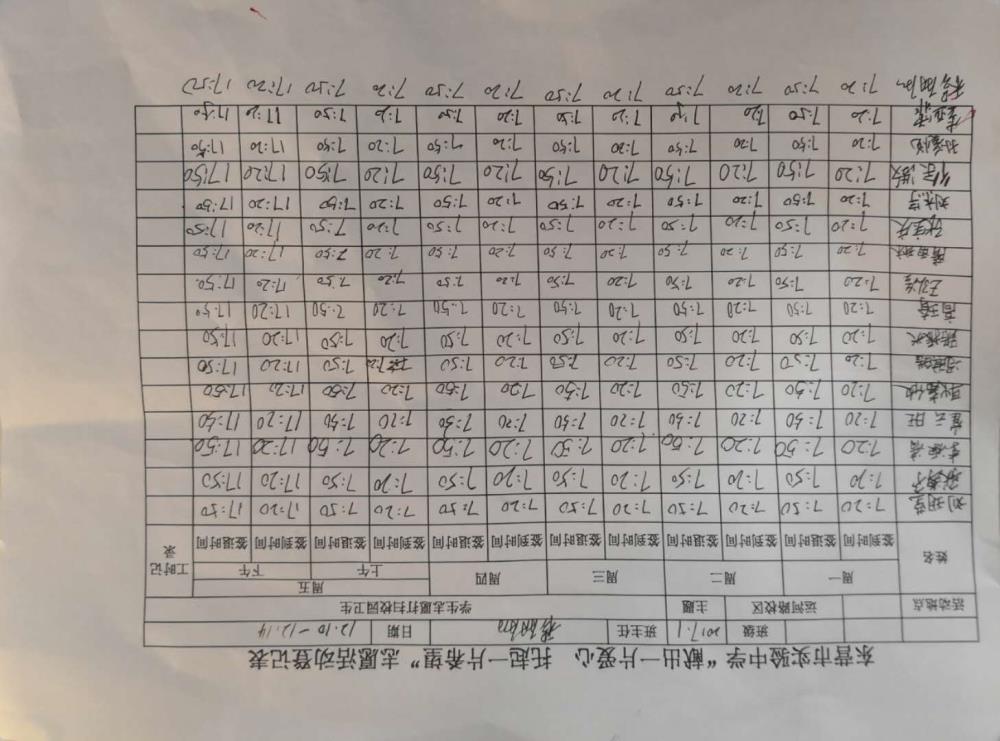 东营市实验中学“献出一片爱心 托起一片希望”志愿活动登记表
班级 2017.1 班主任 日期 12.10-12.14
活动地点 运河路校区 主题 学生志愿打扫校园卫生
姓名 周一 周二 周三 周四 周五 工时记录
上午 下午
签到时间 签退时间 签到时间 签退时间 签到时间 签退时间 签到时间 签退时间 签到时间 签退时间 签到时间 签退时间
7:20 7:50 7:20 7:50 7:20 7:50 7:20 7:50 7:20 7:50 17:20 17:50
7:20 7:50 7:20 7:50 7:20 7:50 7:20 7:50 7:20 7:50 17:20 17:50
7:20 7:50 7:20 7:50 7:20 7:50 7:20 7:50 7:20 7:50 17:20 17:50
7:20 7:50 7:20 7:50 7:20 7:50 7:20 7:50 7:20 7:50 17:20 17:50
7:20 7:50 7:20 7:50 7:20 7:50 7:20 7:50 7:20 7:50 17:20 17:50
7:20 7:50 7:20 7:50 7:20 7:50 7:20 7:50 7:20 7:50 17:20 17:50
7:20 7:50 7:20 7:50 7:20 7:50 7:20 7:50 7:20 7:50 17:20 17:50
高琦 7:20 7:50 7:20 7:50 7:20 7:50 7:20 7:50 7:20 7:50 17:20 17:50
7:20 7:50 7:20 7:50 7:20 7:50 7:20 7:50 7:20 7:50 17:20 17:50
7:20 7:50 7:20 7:50 7:20 7:50 7:20 7:50 7:20 7:50 17:20 17:50
7:20 7:50 7:20 7:50 7:20 7:50 7:20 7:50 7:20 7:50 17:20 17:50
7:20 7:50 7:20 7:50 7:20 7:50 7:20 7:50 7:20 7:50 17:20 17:50
7:20 7:50 7:20 7:50 7:20 7:50 7:20 7:50 7:20 7:50 17:20 17:50
7:20 7:50 7:20 7:50 7:20 7:50 7:20 7:50 7:20 7:50 17:20 17:50
7:20 7:50 7:20 7:50 7:20 7:50 7:20 7:50 7:20 7:50 17:20 17:50
7:20 7:50 7:20 7:50 7:20 7:50 7:20 7:50 7:20 7:50 17:20 17:50